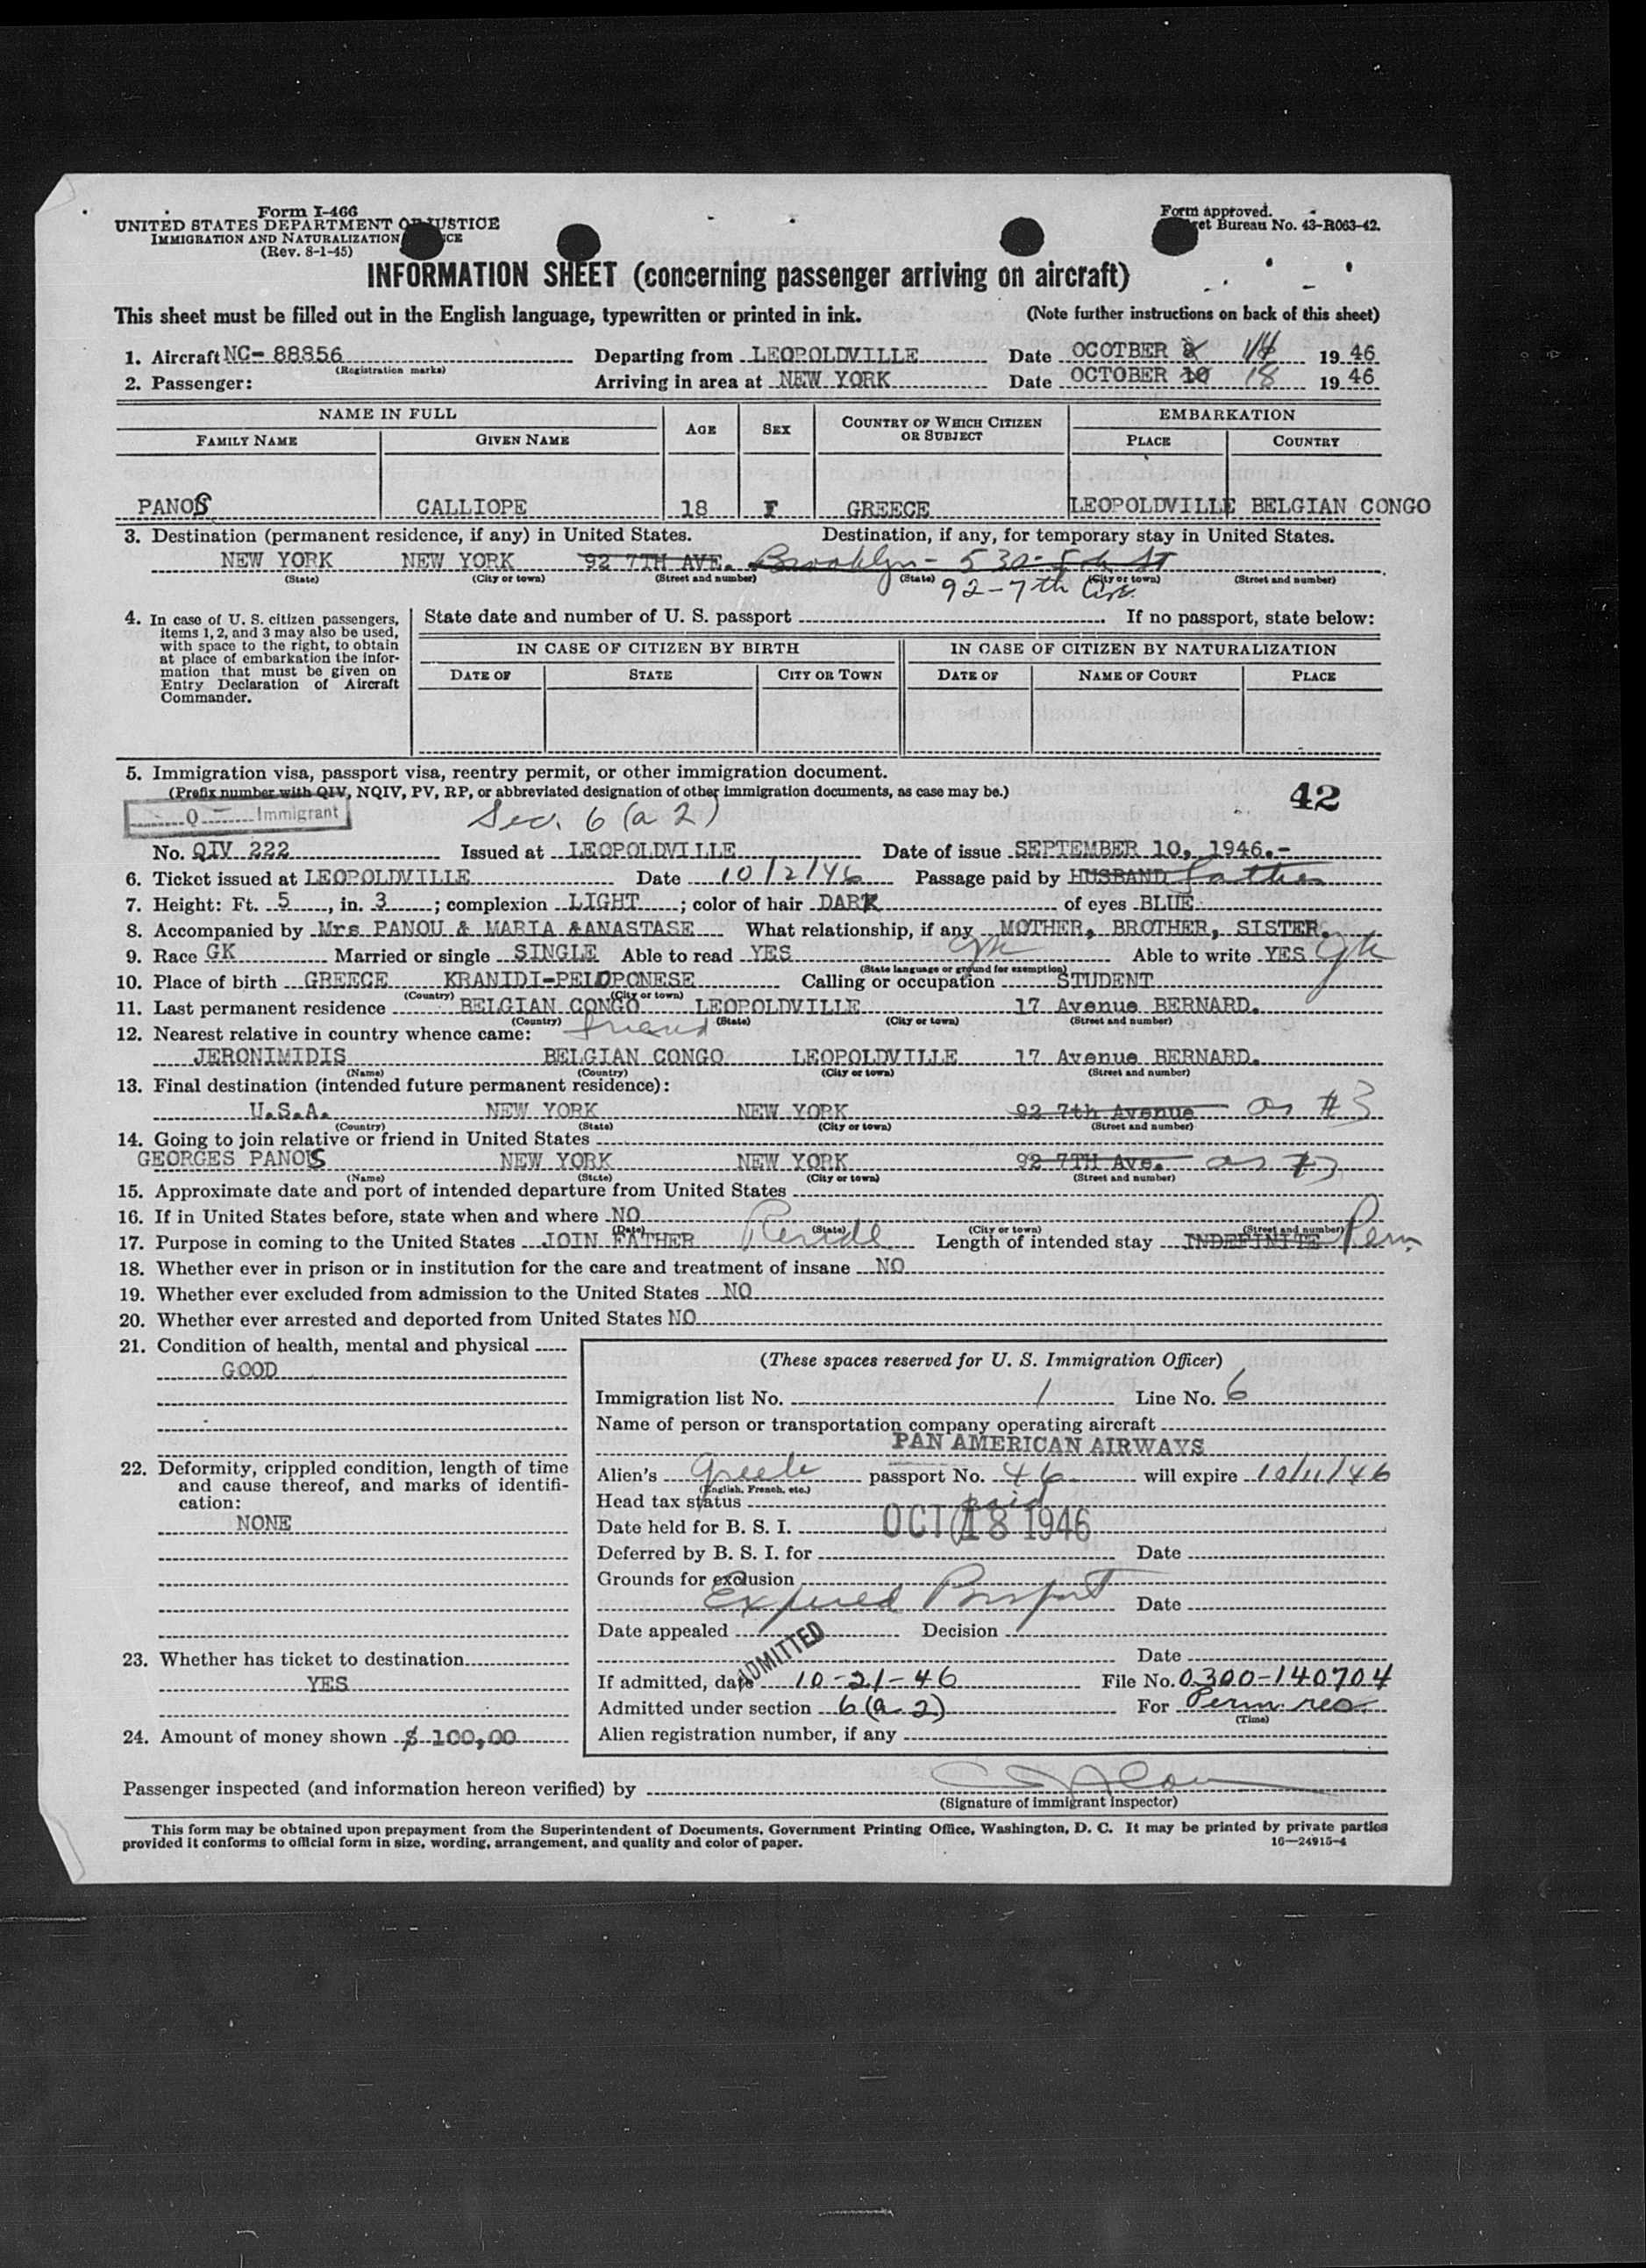 Form I-466
UNITED STATES DEPARTMENT OF JUSTICE
IMMIGRATION AND NATURALIZATION
(Rev. 8-1-45)
Form approved.
Bureau No. 43-R063-42.
INFORMATION SHEET (concerning passenger arriving on aircraft)
This sheet must be filled out in the English language, typewritten or printed in ink. (Note further instructions on back of this sheet)
1. Aircraft NC- 88856 Departing from LEOPOLDVILLE Date OCOTBER 8 14 1946
(Registration marks)
2. Passenger: Arriving in area at NEW YORK Date OCTOBER 10 18 1946
NAME IN FULL AGE SEX COUNTRY OF WHICH CITIZEN OR SUBJECT EMBARKATION
FAMILY NAME GIVEN NAME PLACE COUNTRY
PANOS CALLIOPE 18 F GREECE LEOPOLDVILLE BELGIAN CONGO
3. Destination (permanent residence, if any) in United States. Destination, if any, for temporary stay in United States.
NEW YORK NEW YORK 92 7TH AVE. Brooklyn - 530 - 5th St
(State) (City or town) (Street and number) (State) (City or town) (Street and number)
92 - 7th Ave.
4. In case of U. S. citizen passengers, items 1, 2, and 3 may also be used, with space to the right, to obtain at place of embarkation the information that must be given on Entry Declaration of Aircraft Commander.
State date and number of U. S. passport If no passport, state below:
IN CASE OF CITIZEN BY BIRTH IN CASE OF CITIZEN BY NATURALIZATION
DATE OF STATE CITY OR TOWN DATE OF NAME OF COURT PLACE
5. Immigration visa, passport visa, reentry permit, or other immigration document.
(Prefix number with QIV, NQIV, PV, RP, or abbreviated designation of other immigration documents, as case may be.) 42
Q Immigrant Sec. 6 (a 2)
No. QIV 222 Issued at LEOPOLDVILLE Date of issue SEPTEMBER 10, 1946.-
6. Ticket issued at LEOPOLDVILLE Date 10/2/46 Passage paid by HUSBAND father
7. Height: Ft. 5, in. 3; complexion LIGHT; color of hair DARK of eyes BLUE
8. Accompanied by Mrs PANOU & MARIA &ANASTASE What relationship, if any MOTHER, BROTHER, SISTER.
9. Race GK Married or single SINGLE Able to read YES gk Able to write YES gk
(State language or ground for exemption)
10. Place of birth GREECE KRANIDI-PELOPONESE Calling or occupation STUDENT
(Country) (City or town)
11. Last permanent residence BELGIAN CONGO LEOPOLDVILLE 17 Avenue BERNARD.
(Country) (State) (City or town) (Street and number)
12. Nearest relative in country whence came: friend
JERONIMIDIS BELGIAN CONGO LEOPOLDVILLE 17 Avenue BERNARD.
(Name) (Country) (City or town) (Street and number)
13. Final destination (intended future permanent residence):
U.S.A. NEW YORK NEW YORK 92 7th Avenue as #3
(Country) (State) (City or town) (Street and number)
14. Going to join relative or friend in United States
GEORGES PANOS NEW YORK NEW YORK 92 7TH Ave. as #3
(Name) (State) (City or town) (Street and number)
15. Approximate date and port of intended departure from United States
16. If in United States before, state when and where NO
(Date) (State) (City or town) (Street and number)
17. Purpose in coming to the United States JOIN FATHER Reside Length of intended stay INDEFINITE Perm
18. Whether ever in prison or in institution for the care and treatment of insane NO
19. Whether ever excluded from admission to the United States NO
20. Whether ever arrested and deported from United States NO
21. Condition of health, mental and physical
GOOD
22. Deformity, crippled condition, length of time and cause thereof, and marks of identification:
NONE
23. Whether has ticket to destination
YES
24. Amount of money shown $ 100,00
(These spaces reserved for U. S. Immigration Officer)
Immigration list No. 1 Line No. 6
Name of person or transportation company operating aircraft
PAN AMERICAN AIRWAYS
Alien's Greek passport No. 46 will expire 10/11/46
(English, French, etc.)
Head tax status paid
Date held for B. S. I. OCT 18 1946
Deferred by B. S. I. for Date
Grounds for exclusion
Expired Passport Date
Date appealed Decision
ADMITTED Date
If admitted, date 10-21-46 File No. 0300-140704
Admitted under section 6(a-2) For Perm res.
(Time)
Alien registration number, if any
Passenger inspected (and information hereon verified) by
(Signature of immigrant inspector)
This form may be obtained upon prepayment from the Superintendent of Documents, Government Printing Office, Washington, D. C. It may be printed by private parties
provided it conforms to official form in size, wording, arrangement, and quality and color of paper. 16—24915-4